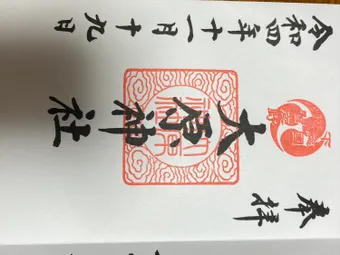 奉拝
大原神社
令和四年十一月十九日